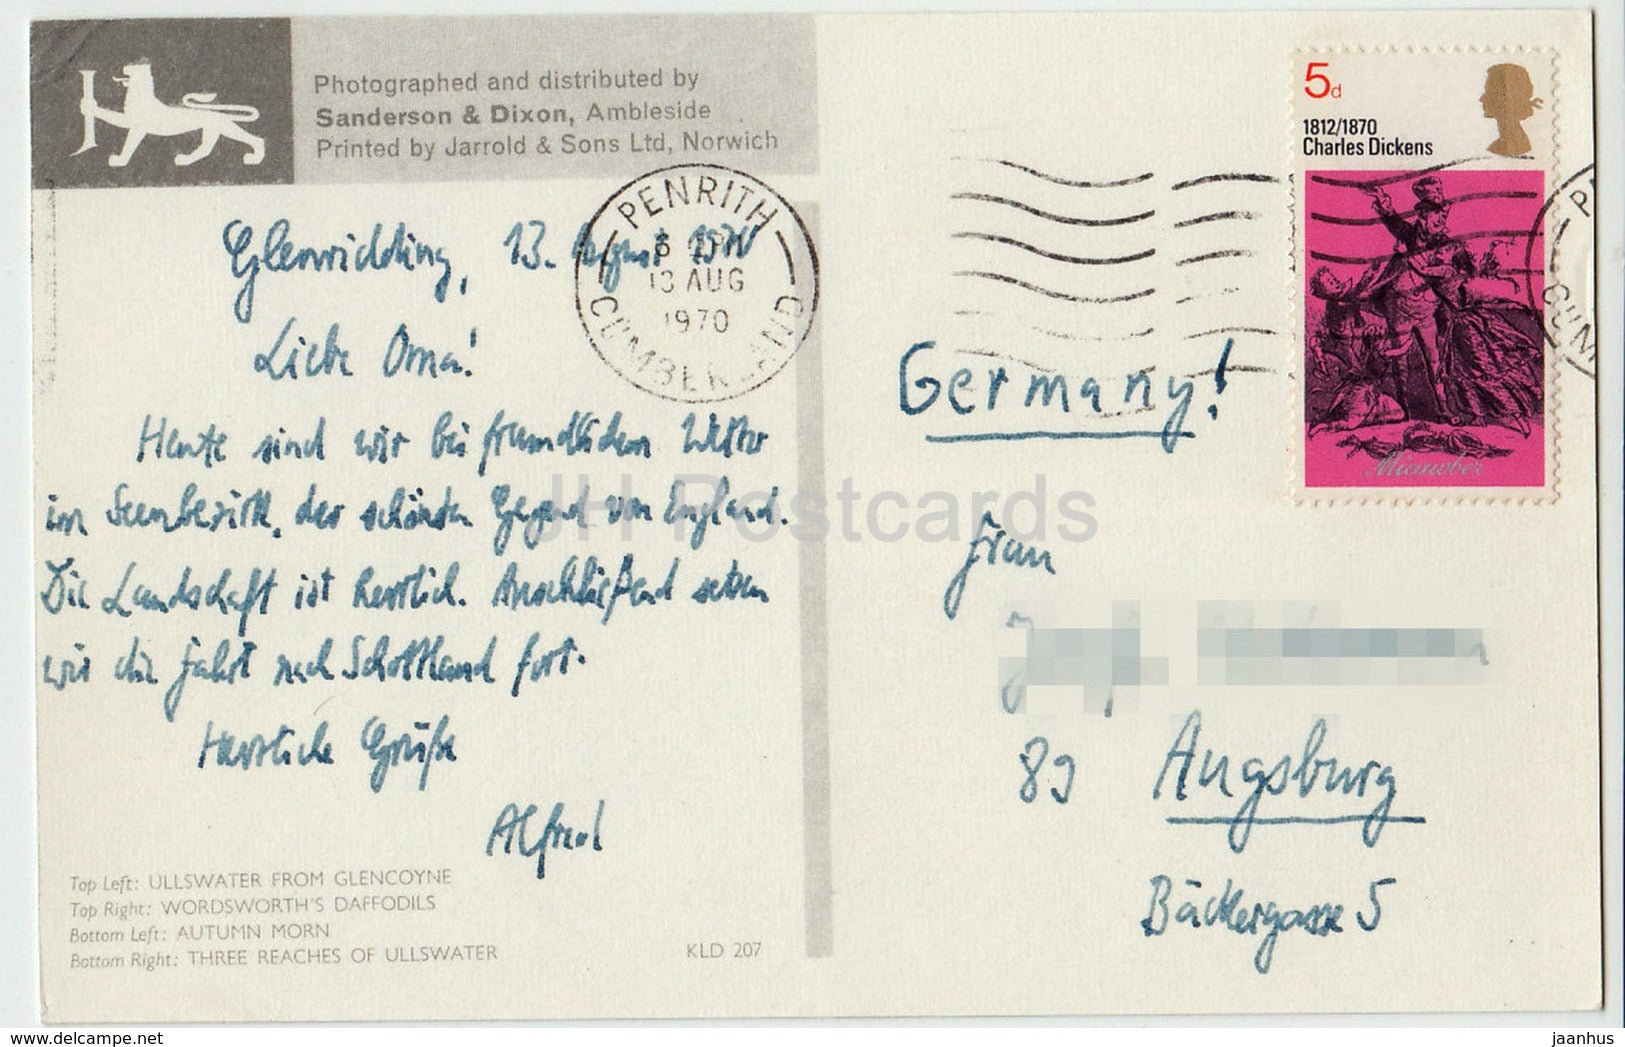 Photographed and distributed by
Sanderson & Dixon, Ambleside
Printed by Jarrold & Sons Ltd, Norwich
Glenridding, 13. August 1970
Liebe Oma!
Heute sind wir bei freundlichem Wetter
im Seenbezirk, der schönsten Gegend von England.
Die Landschaft ist herrlich. Anschließend setzen
wir die Fahrt nach Schottland fort.
Herzliche Grüße
Alfred
Top Left: ULLSWATER FROM GLENCOYNE
Top Right: WORDSWORTH'S DAFFODILS
Bottom Left: AUTUMN MORN
Bottom Right: THREE REACHES OF ULLSWATER
KLD 207
PENRITH
13 AUG
1970
CUMBERLAND
5d
1812/1870
Charles Dickens
Micawber
Germany!
Frau
89 Augsburg
Bäckergasse 5
JH Postcards
https://www.hippostcard.com
jaanhus